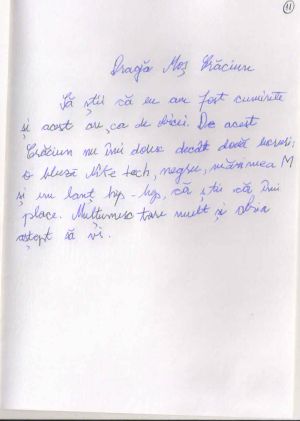 11
Dragă Moș Crăciun
Să știi că eu am fost cuminte
și acest an, ca de obicei. De acest
Crăciun nu îmi doresc decât două lucruri:
o bluză Nike tech, negru, mărimea M
și un lanț hip-hop, că știi că îmi
place. Mulțumesc tare mult și abia
aștept să vii.